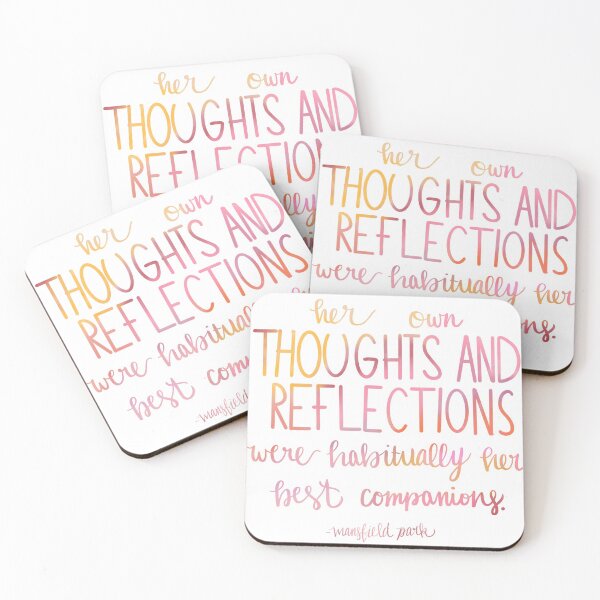 her own
THOUGHTS AND
REFLECTIONS
her own
THOUGHTS AND
REFLECTIONS
were habitually her
her own
THOUGHTS AND
REFLECTIONS
were habitually
best comp
-mansfield
her own
THOUGHTS AND
REFLECTIONS
were habitually her
best companions.
-mansfield park